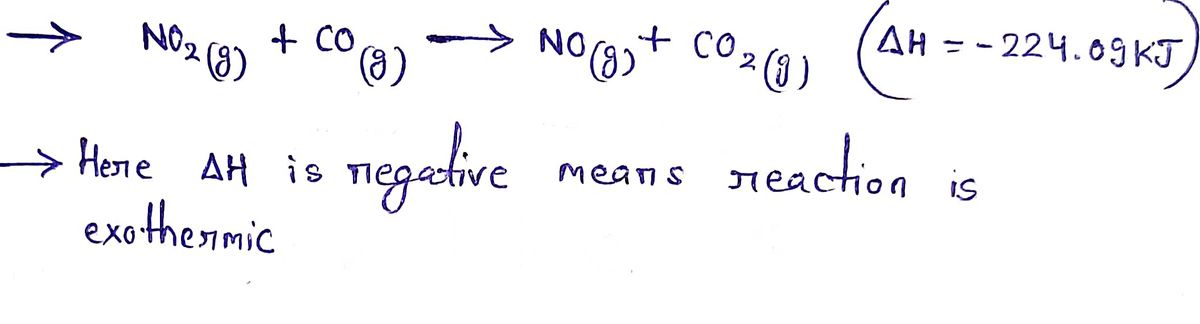 → NO₂(g) + CO(g) → NO(g) + CO₂(g) (ΔH = -224.09KJ)
→ Here ΔH is negative means reaction is
exothermic